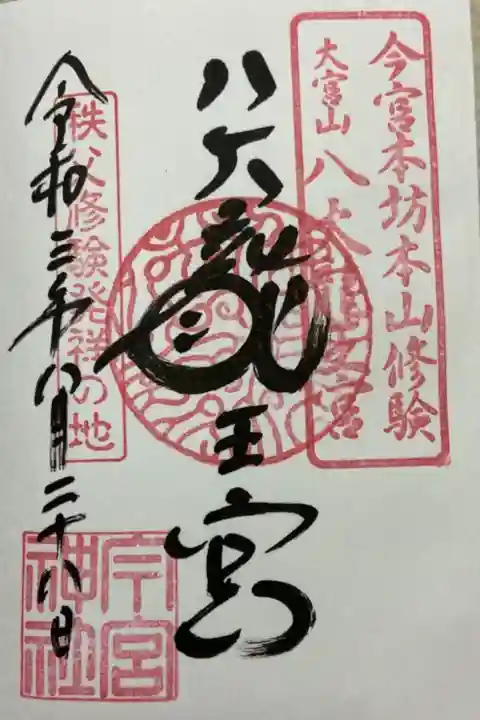 今宮本坊本山修験
大宮山八大龍王宮
八大龍王宮
秩父修験発祥の地
令和三年八月二十八日
今宮神社